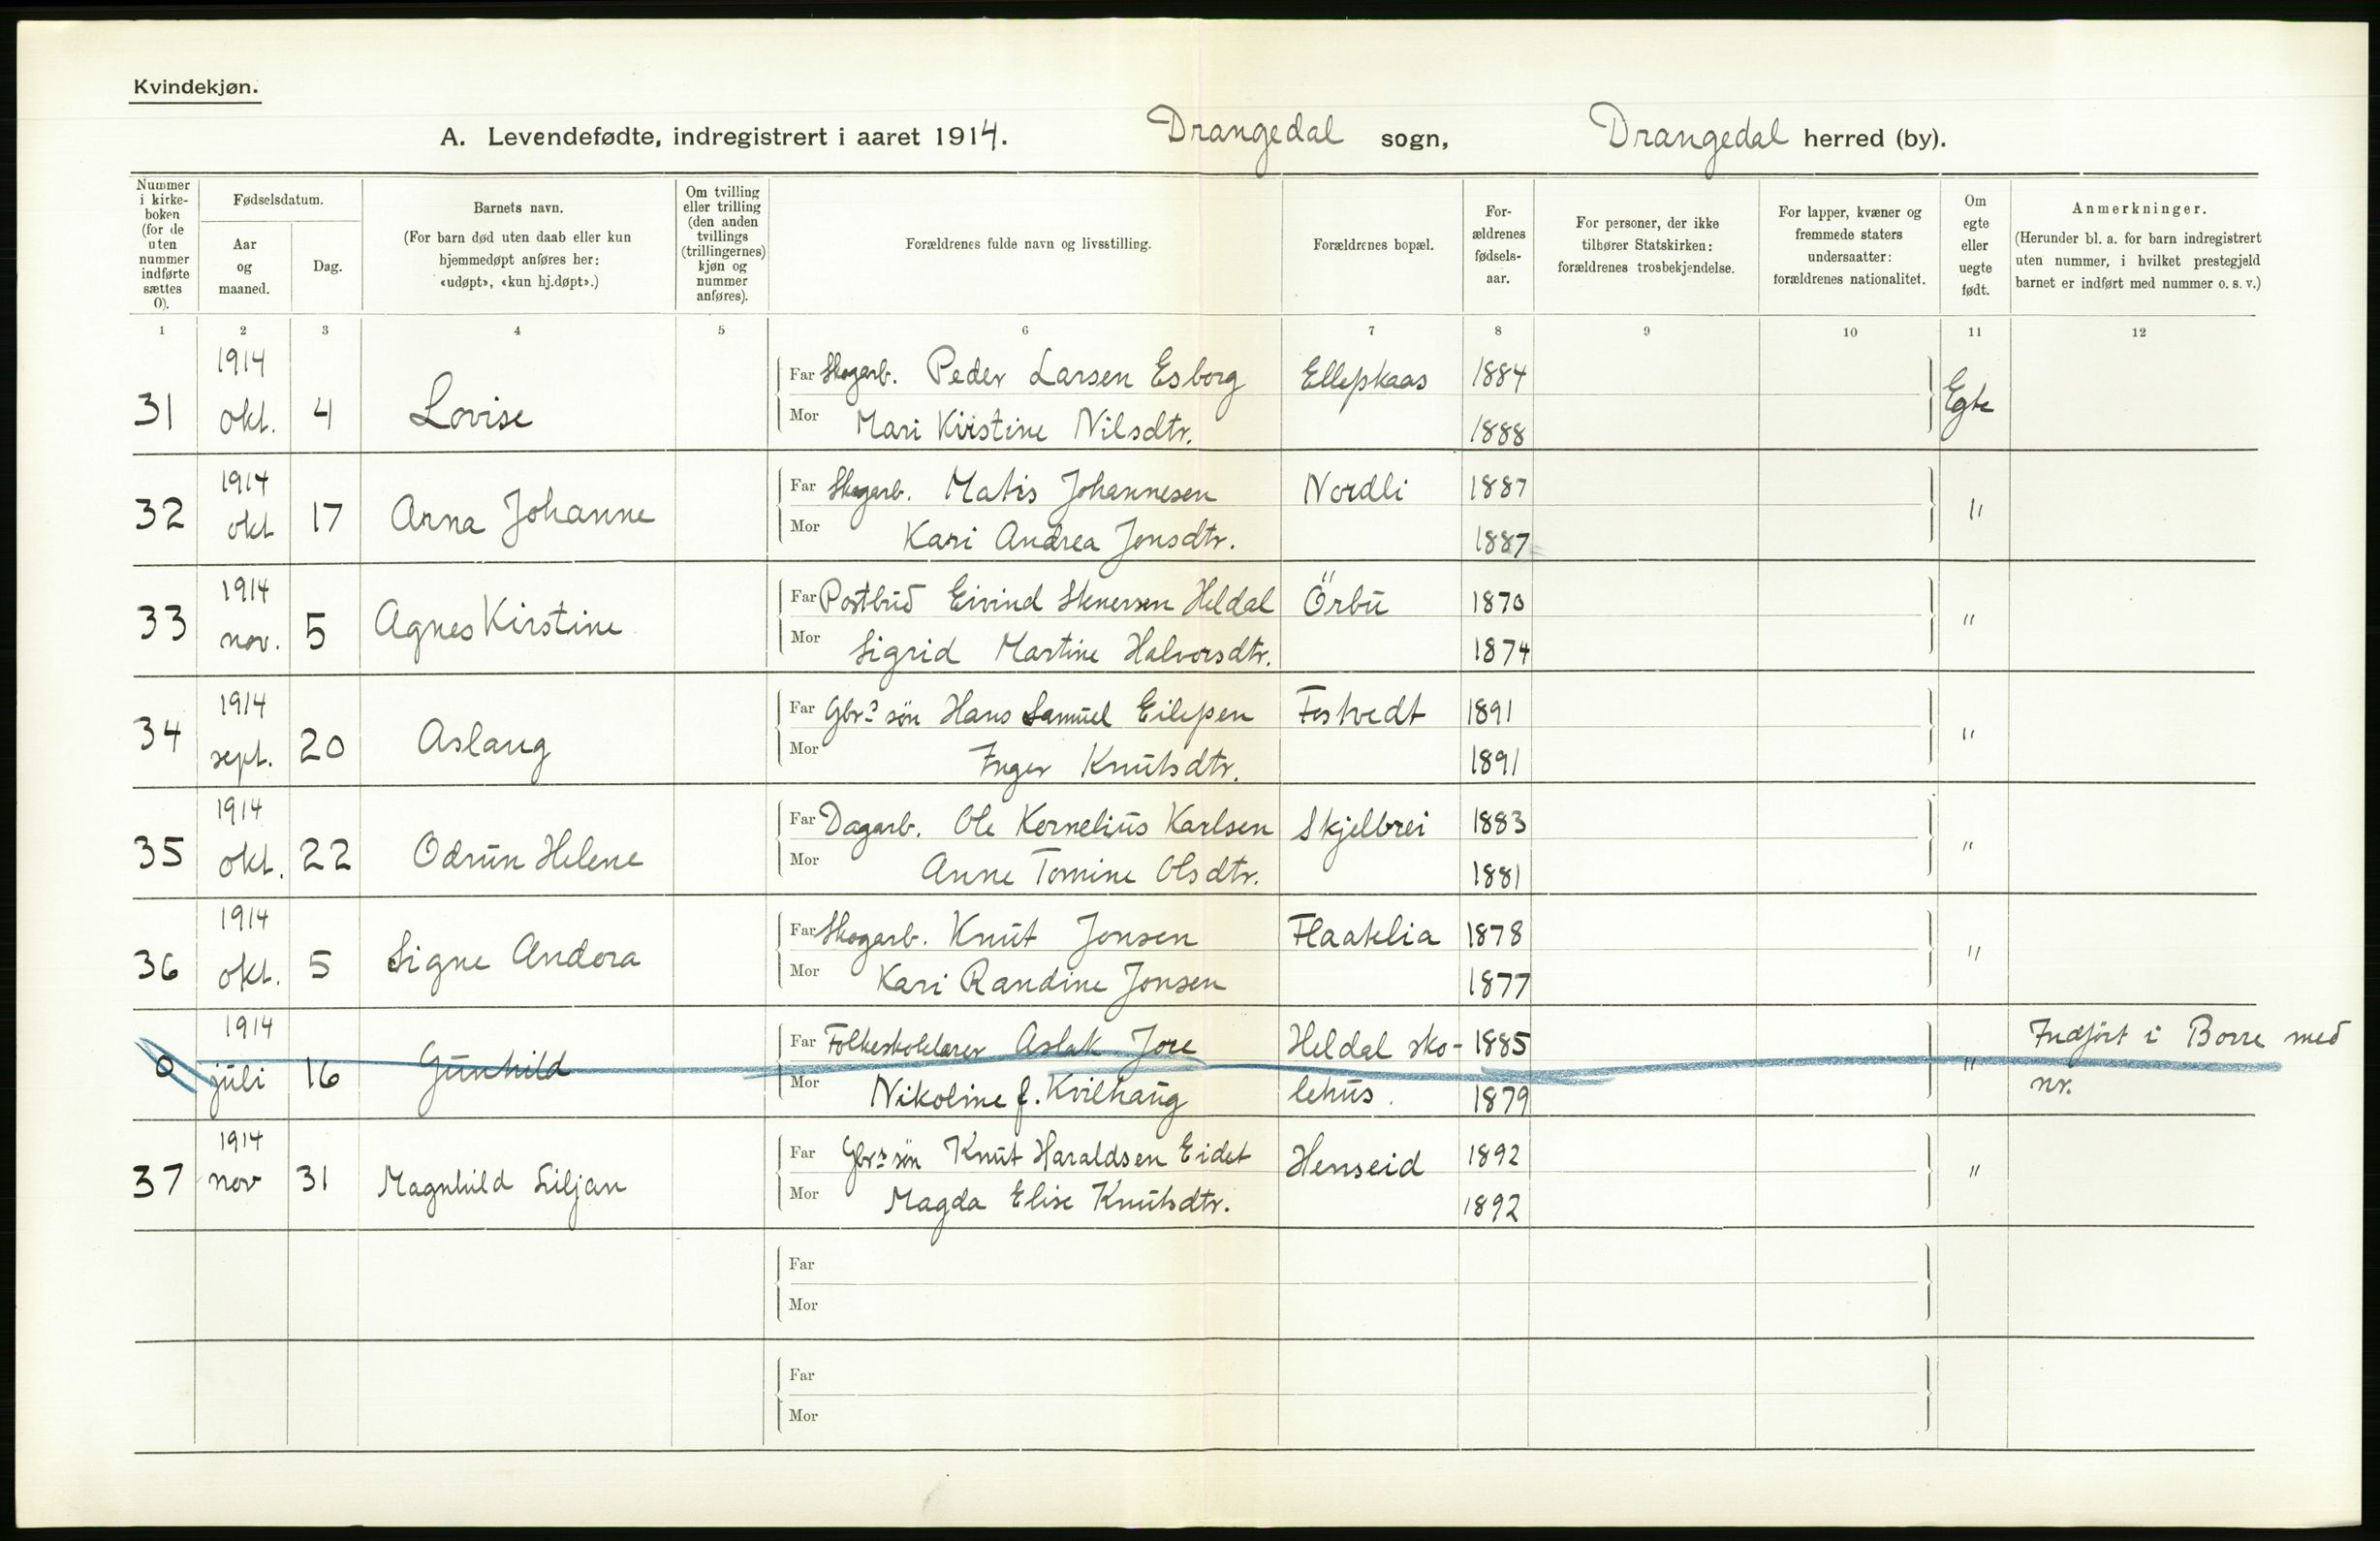 Kvindekjøn.
A. Levendefødte, indregistrert i aaret 1914. Drangedal sogn, Drangedal herred (by).
Nummer i kirke- boken (for de uten nummer indførte sættes 0).
Fødselsdatum.
Aar og maaned.
Dag.
Barnets navn.
(For barn død uten daab eller kun hjemmedøpt anføres her: «udøpt», «kun hj.døpt».)
Om tvilling eller trilling (den anden tvillings (trillingernes) kjøn og nummer anføres).
Forældrenes fulde navn og livsstilling.
Forældrenes bopæl.
For- ældrenes fødsels- aar.
For personer, der ikke tilhører Statskirken: forældrenes trosbekjendelse.
For lapper, kvæner og fremmede staters undersaatter: forældrenes nationalitet.
Om egte eller uegte født.
Anmerkninger.
(Herunder bl. a. for barn indregistrert uten nummer, i hvilket prestegjeld barnet er indført med nummer o. s. v.)
1 2 3 4 5 6 7 8 9 10 11 12
1914 Far Skogarb. Peder Larsen Esborg Ellefskaas 1884
31 okt. 4 Lovise Mor Mari Kirstine Nilsdtr. 1888 Egte
1914 Far Skogarb. Matis Johannesen Nordli 1887
32 okt 17 Arna Johanne Mor Kari Andrea Jonsdtr. 1887 "
1914 Far Postbud Eivind Stenersen Heldal Örbu 1870
33 nov. 5 Agnes Kirstine Mor Sigrid Martine Halvorsdtr. 1874 "
1914 Far Gbr.s søn Hans Samuel Eilefsen Fostvedt 1891
34 sept. 20 Aslaug Mor Inger Knutsdtr. 1891 "
1914 Far Dagarb. Ole Kornelius Karlsen Skjelbrei 1883
35 okt. 22 Odrun Helene Mor Anne Tomine Olsdtr. 1881 "
1914 Far Skogarb. Knut Jonsen Flaatelia 1878
36 okt. 5 Signe Andora Mor Kari Randine Jonsen 1877 "
1914 Far Folkeskolelærer Aslak Jore Heldal sko- 1885 Indført i Borre med
0 juli 16 Gunhild Mor Nikoline f. Kvilhaug lehus. 1879 " nr.
1914 Far Gbr.s søn Knut Haraldsen Eidet Henseid 1892
37 nov 31 Magnhild Liljan Mor Magda Elise Knutsdtr. 1892 "
Far
Mor
Far
Mor